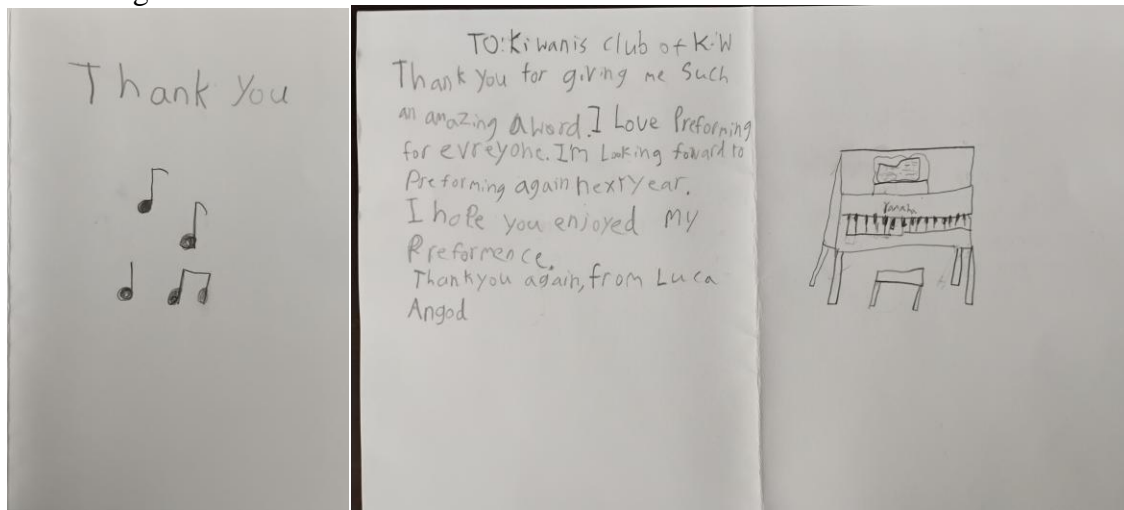 Thank You
TO: Kiwanis club of K-W
Thank you for giving me Such
an amazing aword. I Love Preforming
for evreyone. Im Looking foward to
Preforming again next Year.
I hope you enjoyed my
Preformence.
Thankyou again, from Luca
Angod
Yamaha